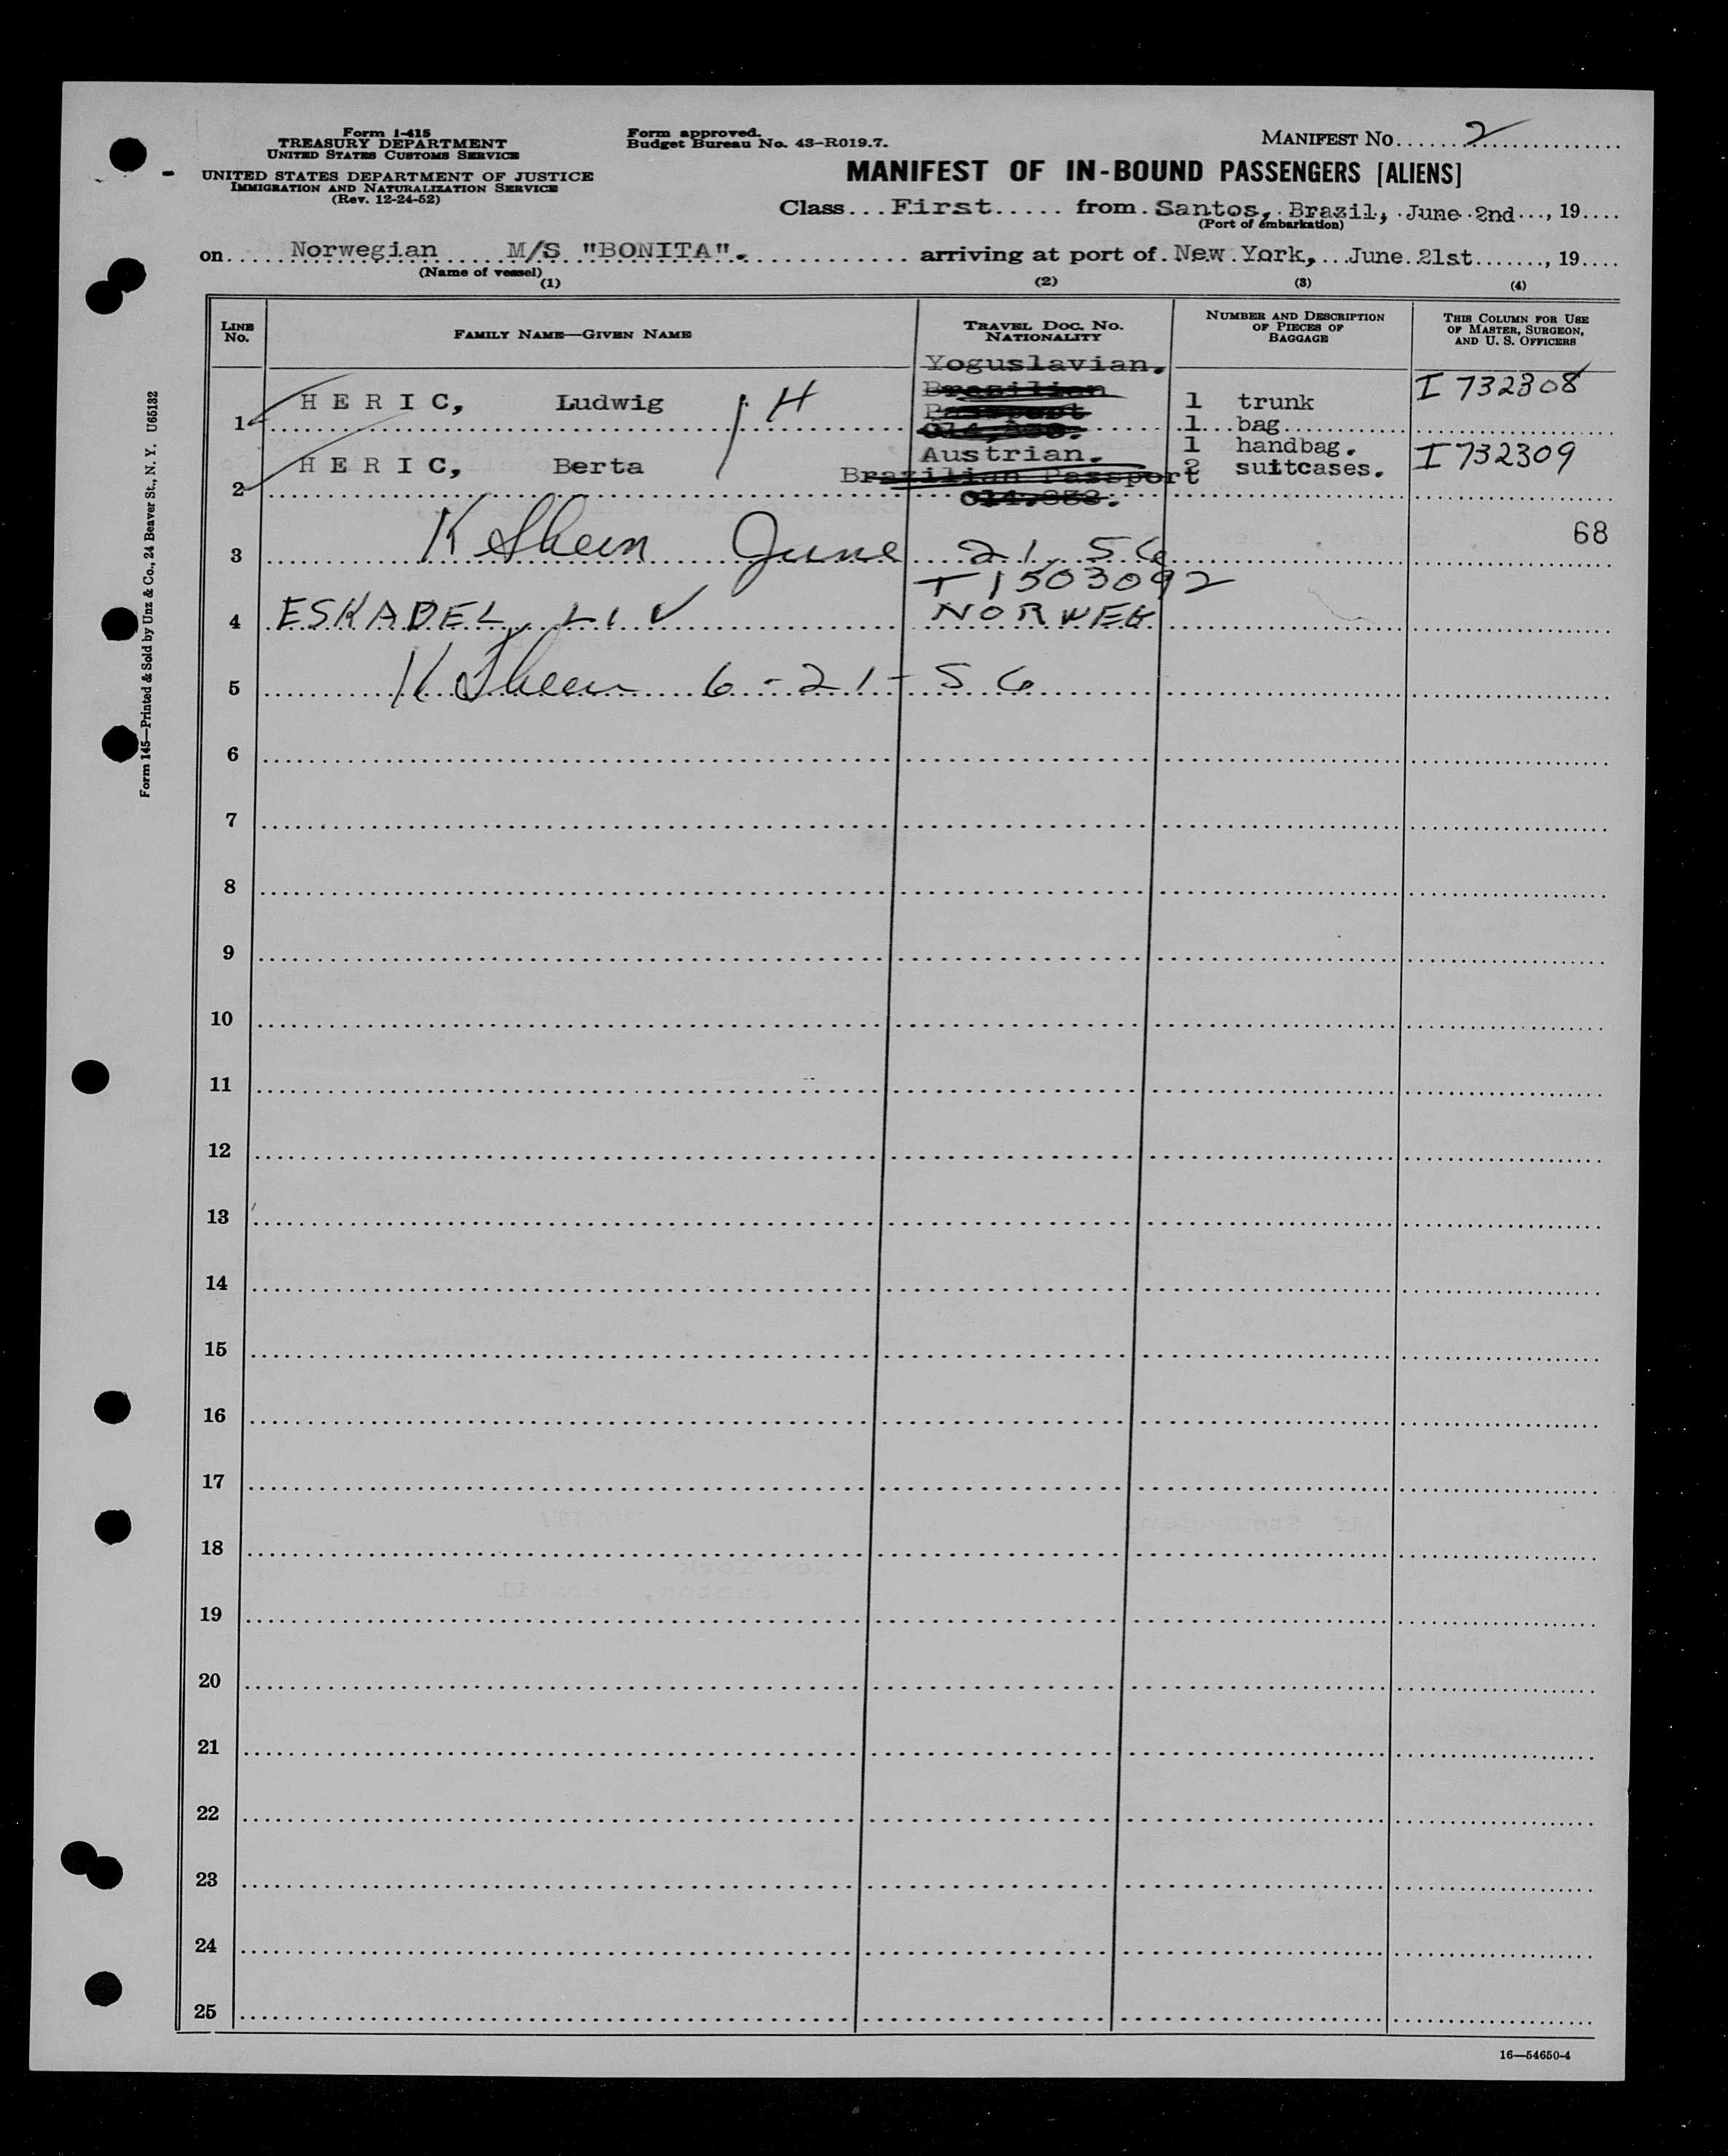 Form I-415
TREASURY DEPARTMENT
UNITED STATES CUSTOMS SERVICE
UNITED STATES DEPARTMENT OF JUSTICE
IMMIGRATION AND NATURALIZATION SERVICE
(Rev. 12-24-52)
Form approved.
Budget Bureau No. 43-R019.7.
MANIFEST NO. 2
MANIFEST OF IN-BOUND PASSENGERS [ALIENS]
Class First from Santos, Brazil, June 2nd, 19
(Port of embarkation)
on Norwegian M/S "BONITA". arriving at port of New York, June 21st, 19
(Name of vessel)
(1) (2) (3) (4)
LINE No. FAMILY NAME—GIVEN NAME TRAVEL DOC. NO. NATIONALITY NUMBER AND DESCRIPTION OF PIECES OF BAGGAGE THIS COLUMN FOR USE OF MASTER, SURGEON, AND U. S. OFFICERS
Yoguslavian.
Brazilian
Passport
1 HERIC, Ludwig H 1 trunk I 732308
1 bag
1 handbag.
2 HERIC, Berta Austrian. 2 suitcases. I 732309
Brazilian Passport
68
3 June 21, 56
T1503092
4 ESKADEL, LIV NORWEG
5 6-21-56
6
7
8
9
10
11
12
13
14
15
16
17
18
19
20
21
22
23
24
25
16—54650-4
Form 145—Printed & Sold by Unz & Co., 24 Beaver St., N. Y. U65132